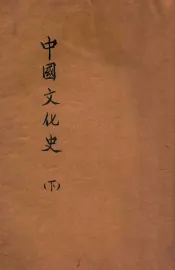 中國文化史
(下)